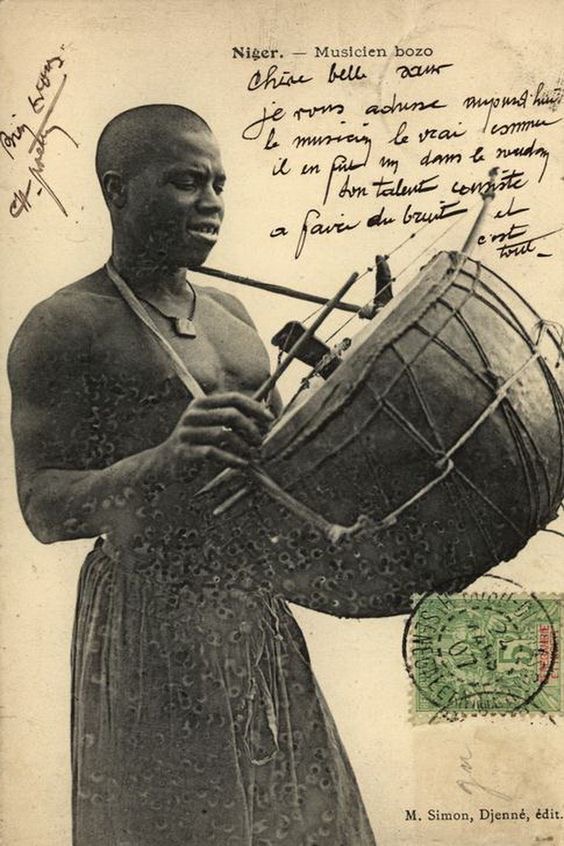 Niger. — Musicien bozo
Chère belle sœur
je vous adresse aujourd'hui
le musicien le vrai comme
il en fut un dans le soudan
son talent consiste
a faire du bruit et
c'est
tout —
5
M. Simon, Djenné, édit.